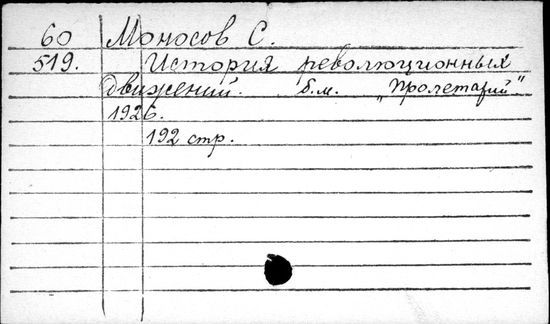 60 Моносов С.
519. История революционных
движений. б.м. "Пролетарий"
1926.
192 стр.